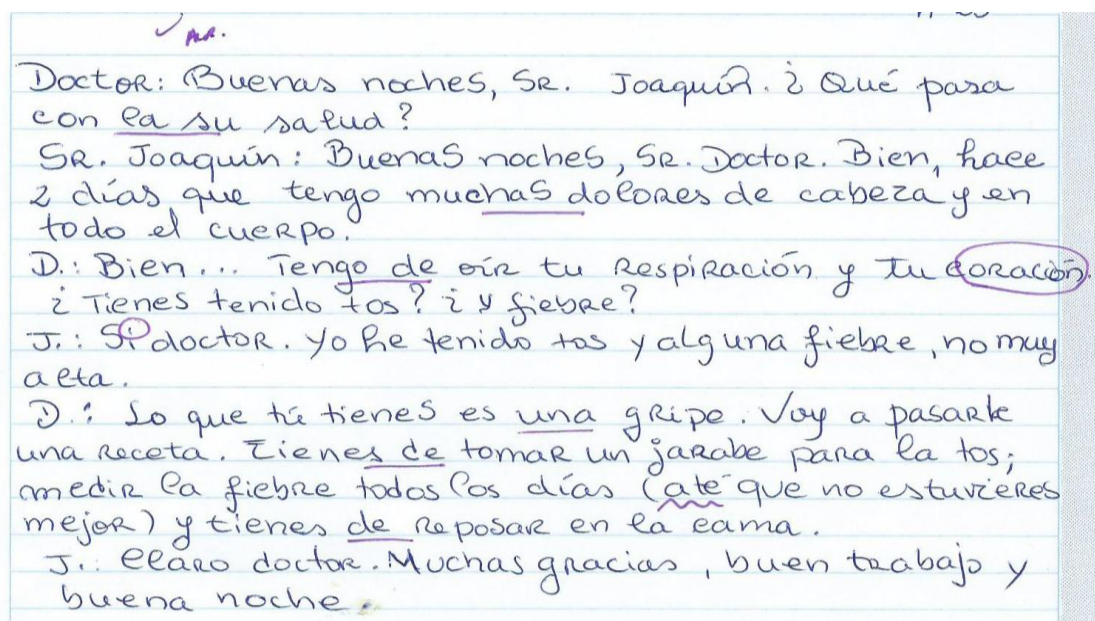 Doctor: Buenas noches, Sr. Joaquín. ¿Qué pasa
con la su salud?
Sr. Joaquín: Buenas noches, Sr. Doctor. Bien, hace
2 días que tengo muchas dolores de cabeza y en
todo el cuerpo.
D.: Bien... Tengo de oír tu respiración y tu coración.
¿Tienes tenido tos? ¿y fiebre?
J.: Sí doctor. Yo he tenido tos y alguna fiebre, no muy
alta.
D.: Lo que tú tienes es una gripe. Voy a pasarle
una receta. Tienes de tomar un jarabe para la tos;
medir la fiebre todos los días (até que no estuvieres
mejor) y tienes de reposar en la cama.
J.: Claro doctor. Muchas gracias, buen trabajo y
buena noche.